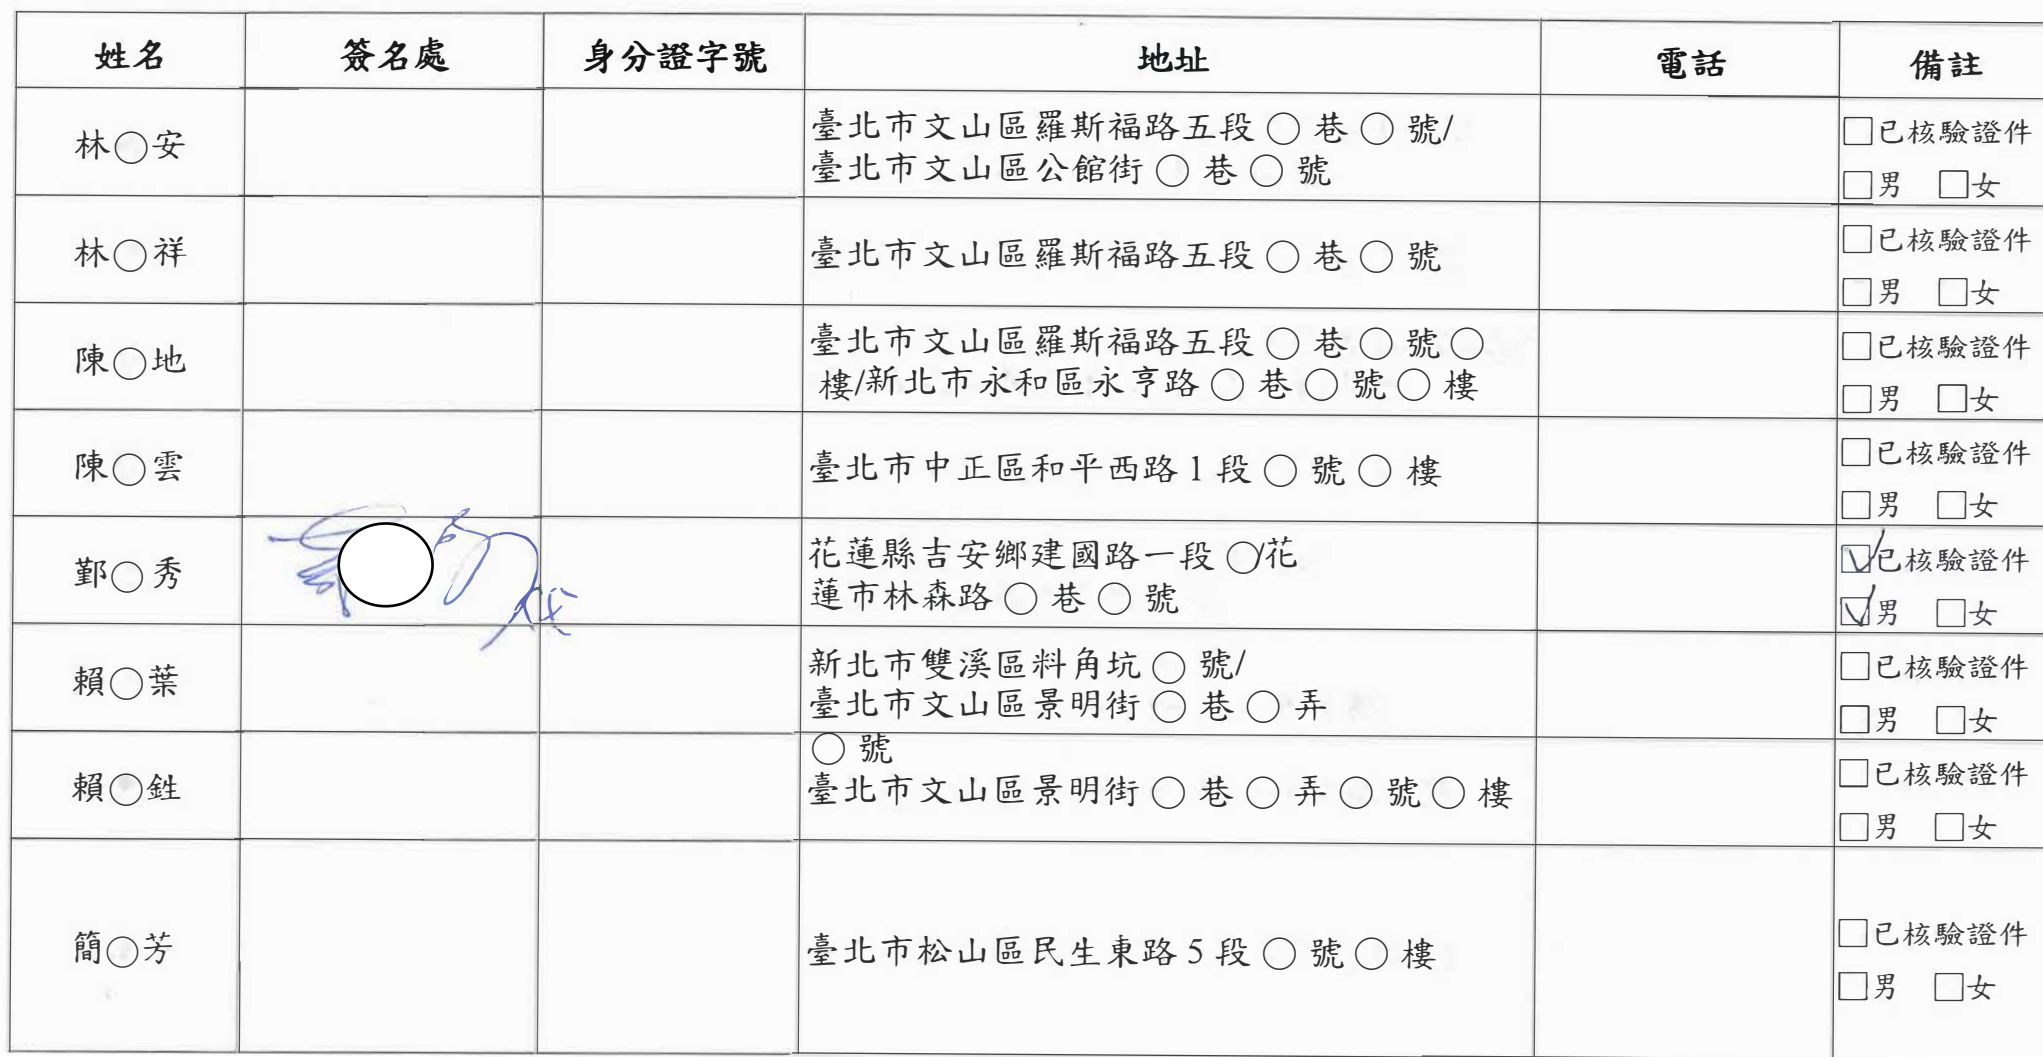 姓名 簽名處 身分證字號 地址 電話 備註
林○安
臺北市文山區羅斯福路五段○巷○號/
臺北市文山區公館街○巷○號
□已核驗證件
□男 □女
林○祥
臺北市文山區羅斯福路五段○巷○號
□已核驗證件
□男 □女
陳○地
臺北市文山區羅斯福路五段○巷○號○
樓/新北市永和區永亨路○巷○號○樓
□已核驗證件
□男 □女
陳○雲
臺北市中正區和平西路1段○號○樓
□已核驗證件
□男 □女
鄞○秀
花蓮縣吉安鄉建國路一段○/花
蓮市林森路○巷○號
☑已核驗證件
☑男 □女
賴○葉
新北市雙溪區料角坑○號/
臺北市文山區景明街○巷○弄
○號
□已核驗證件
□男 □女
賴○鉎
臺北市文山區景明街○巷○弄○號○樓
□已核驗證件
□男 □女
簡○芳
臺北市松山區民生東路5段○號○樓
□已核驗證件
□男 □女